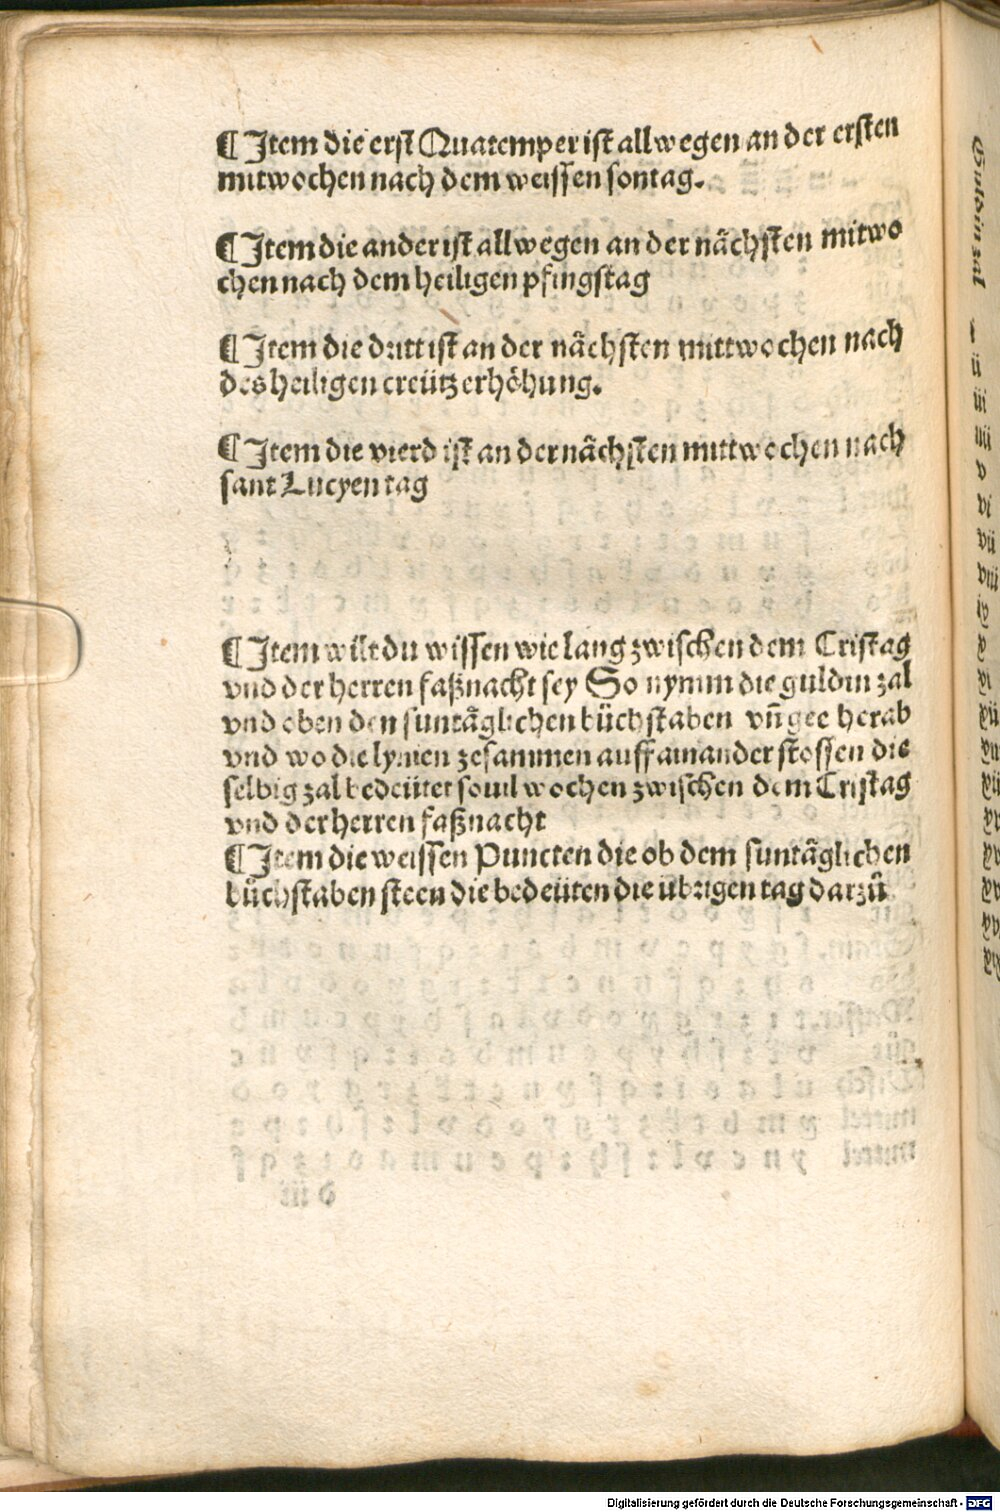 ¶ Item die erst Quatemper ist allwegen an der ersten
mitwochen nach dem weissen sontag.
¶ Item die ander ist allwegen an der nächsten mitwo
chen nach dem heiligen pfingstag
¶ Item die dritt ist an der nächsten mittwochen nach
des heiligen creütz erhöhung.
¶ Item die vierd ist an der nächsten mittwochen nach
sant Lucyen tag
¶ Item wilt du wissen wie lang zwischen dem Cristag
vnd der herren faßnacht sey So nymm die guldin zal
vnd oben den suntäglichen büchstaben vñ gee herab
vnd wo die lynien zesammen auff ainander stossen die
selbig zal bedeütet souil wochen zwischen dem Cristag
vnd der herren faßnacht
¶ Item die weissen Puncten die ob dem suntäglichen
bůchstaben steen die bedeüten die übrigen tag darzů
Guldin zal
i
ii
iii
iiii
v
vi
vii
viii
Digitalisierung gefördert durch die Deutsche Forschungsgemeinschaft - DFG